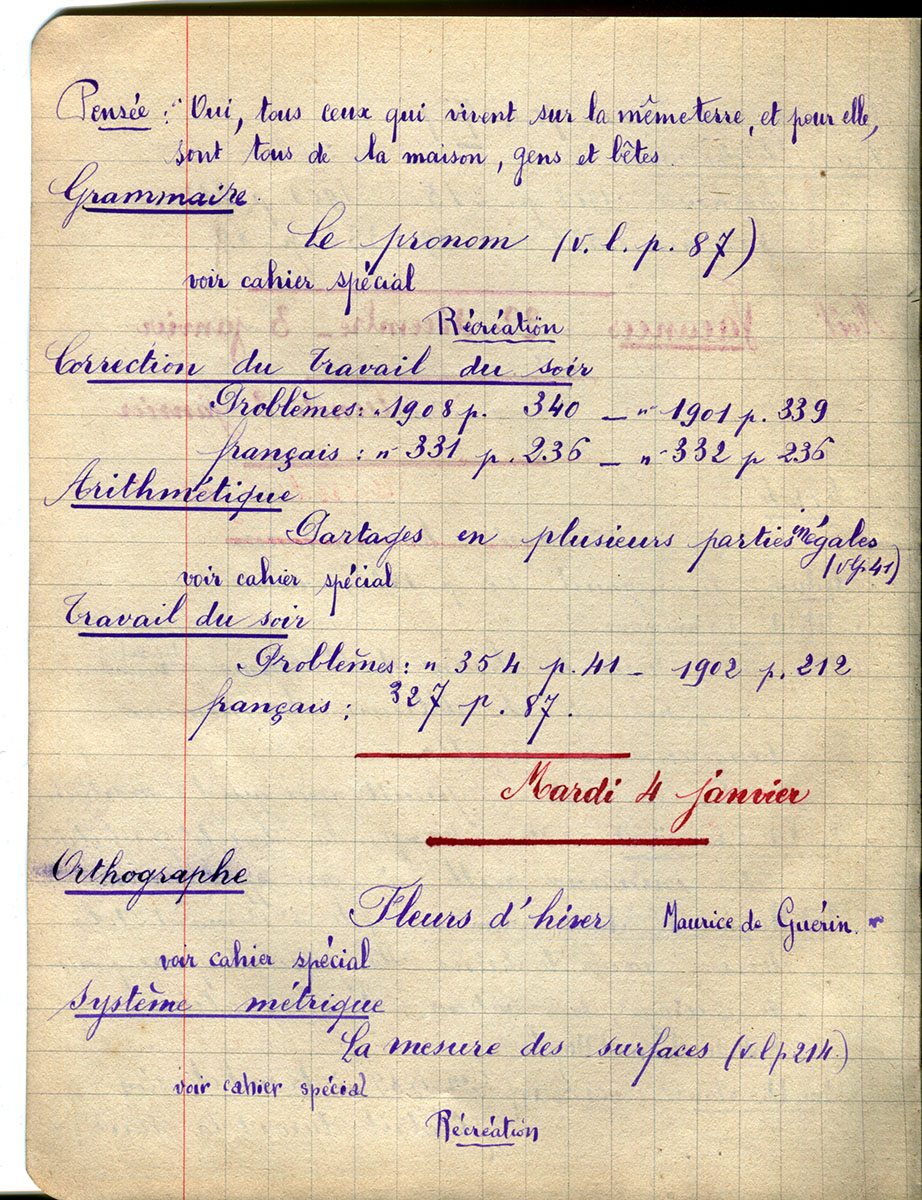 Pensée : " Oui, tous ceux qui vivent sur la même terre, et pour elle,
sont tous de la maison, gens et bêtes.
Grammaire.
Le pronom (v. l. p. 87)
voir cahier spécial
Récréation
Correction du travail du soir
Problèmes : n° 1908 p. 340 — n° 1901 p. 339
français : n° 331 p. 236 — n° 332 p 236
Arithmétique
Partages en plusieurs parties inégales
(v l p 41)
voir cahier spécial
Travail du soir
Problèmes : n° 354 p. 41 — 1902 p. 212
français : 327 p. 87.
Mardi 4 janvier
Orthographe
Fleurs d'hiver Maurice de Guérin.
voir cahier spécial
Système métrique
La mesure des surfaces (v. l p 214.)
voir cahier spécial
Récréation